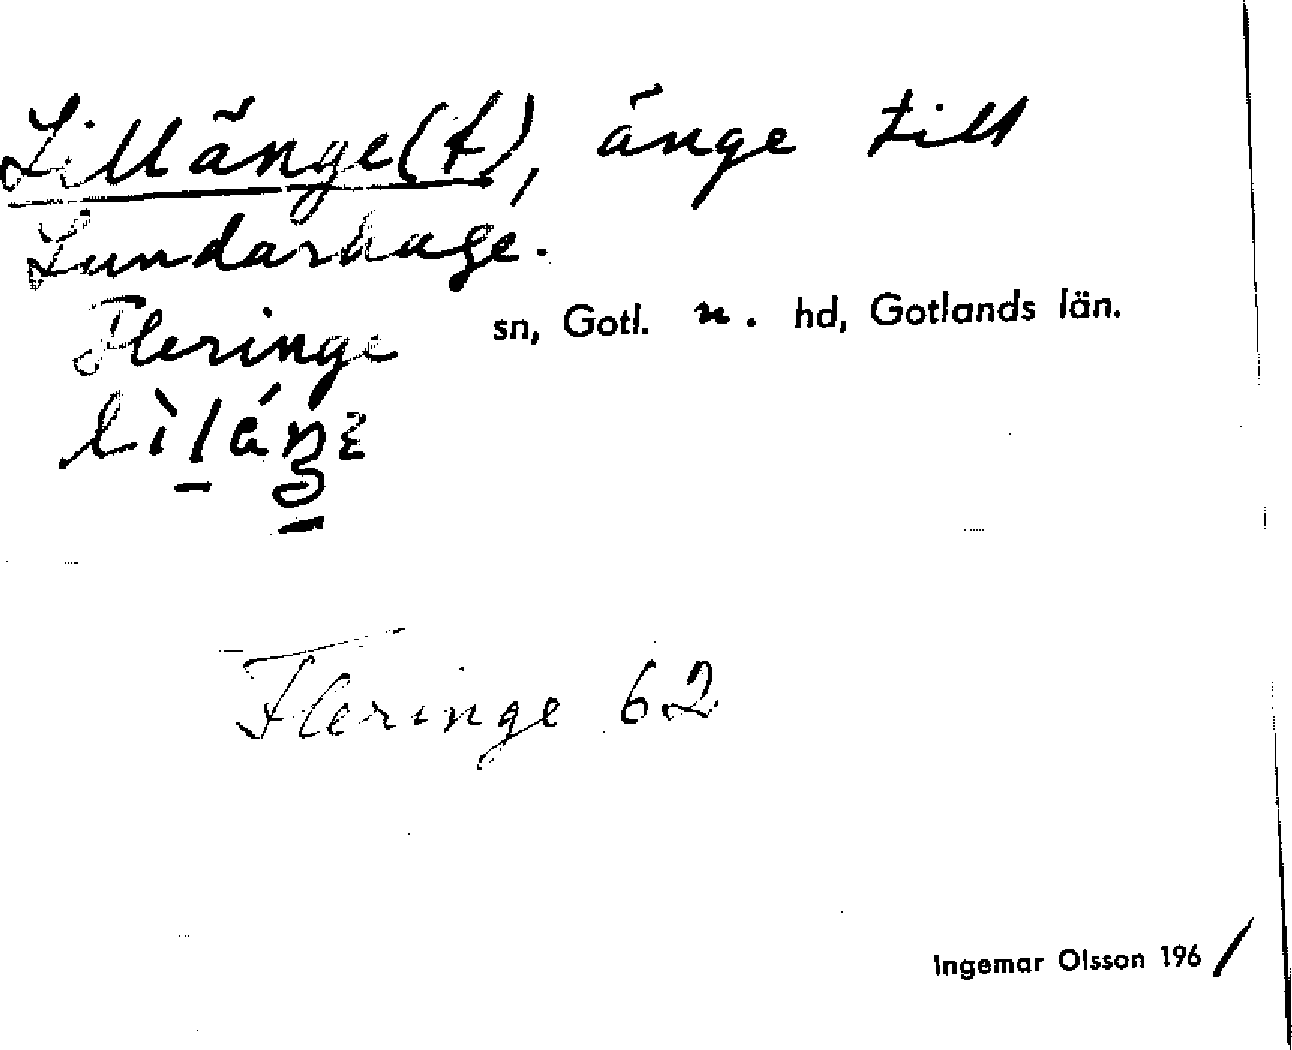 Lillänge(t), änge till
Lundarhage.
Fleringe sn, Gotl. n. hd, Gotlands län.
Fleringe 62
Ingemar Olsson 1961